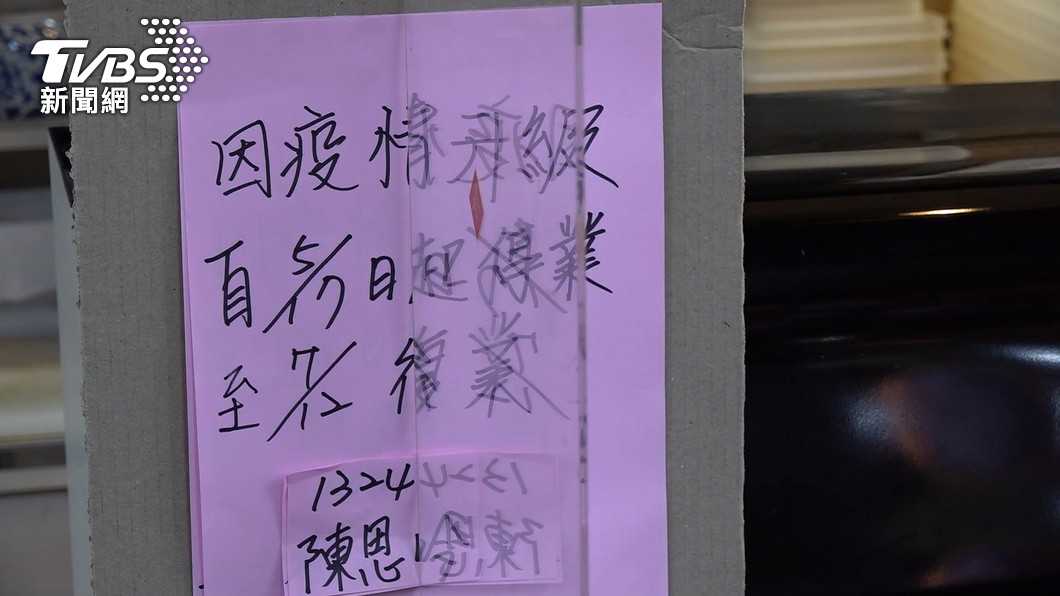 TVBS
新聞網
因疫情升級
自5/17日起停業
至7/12復業
1324
陳恩